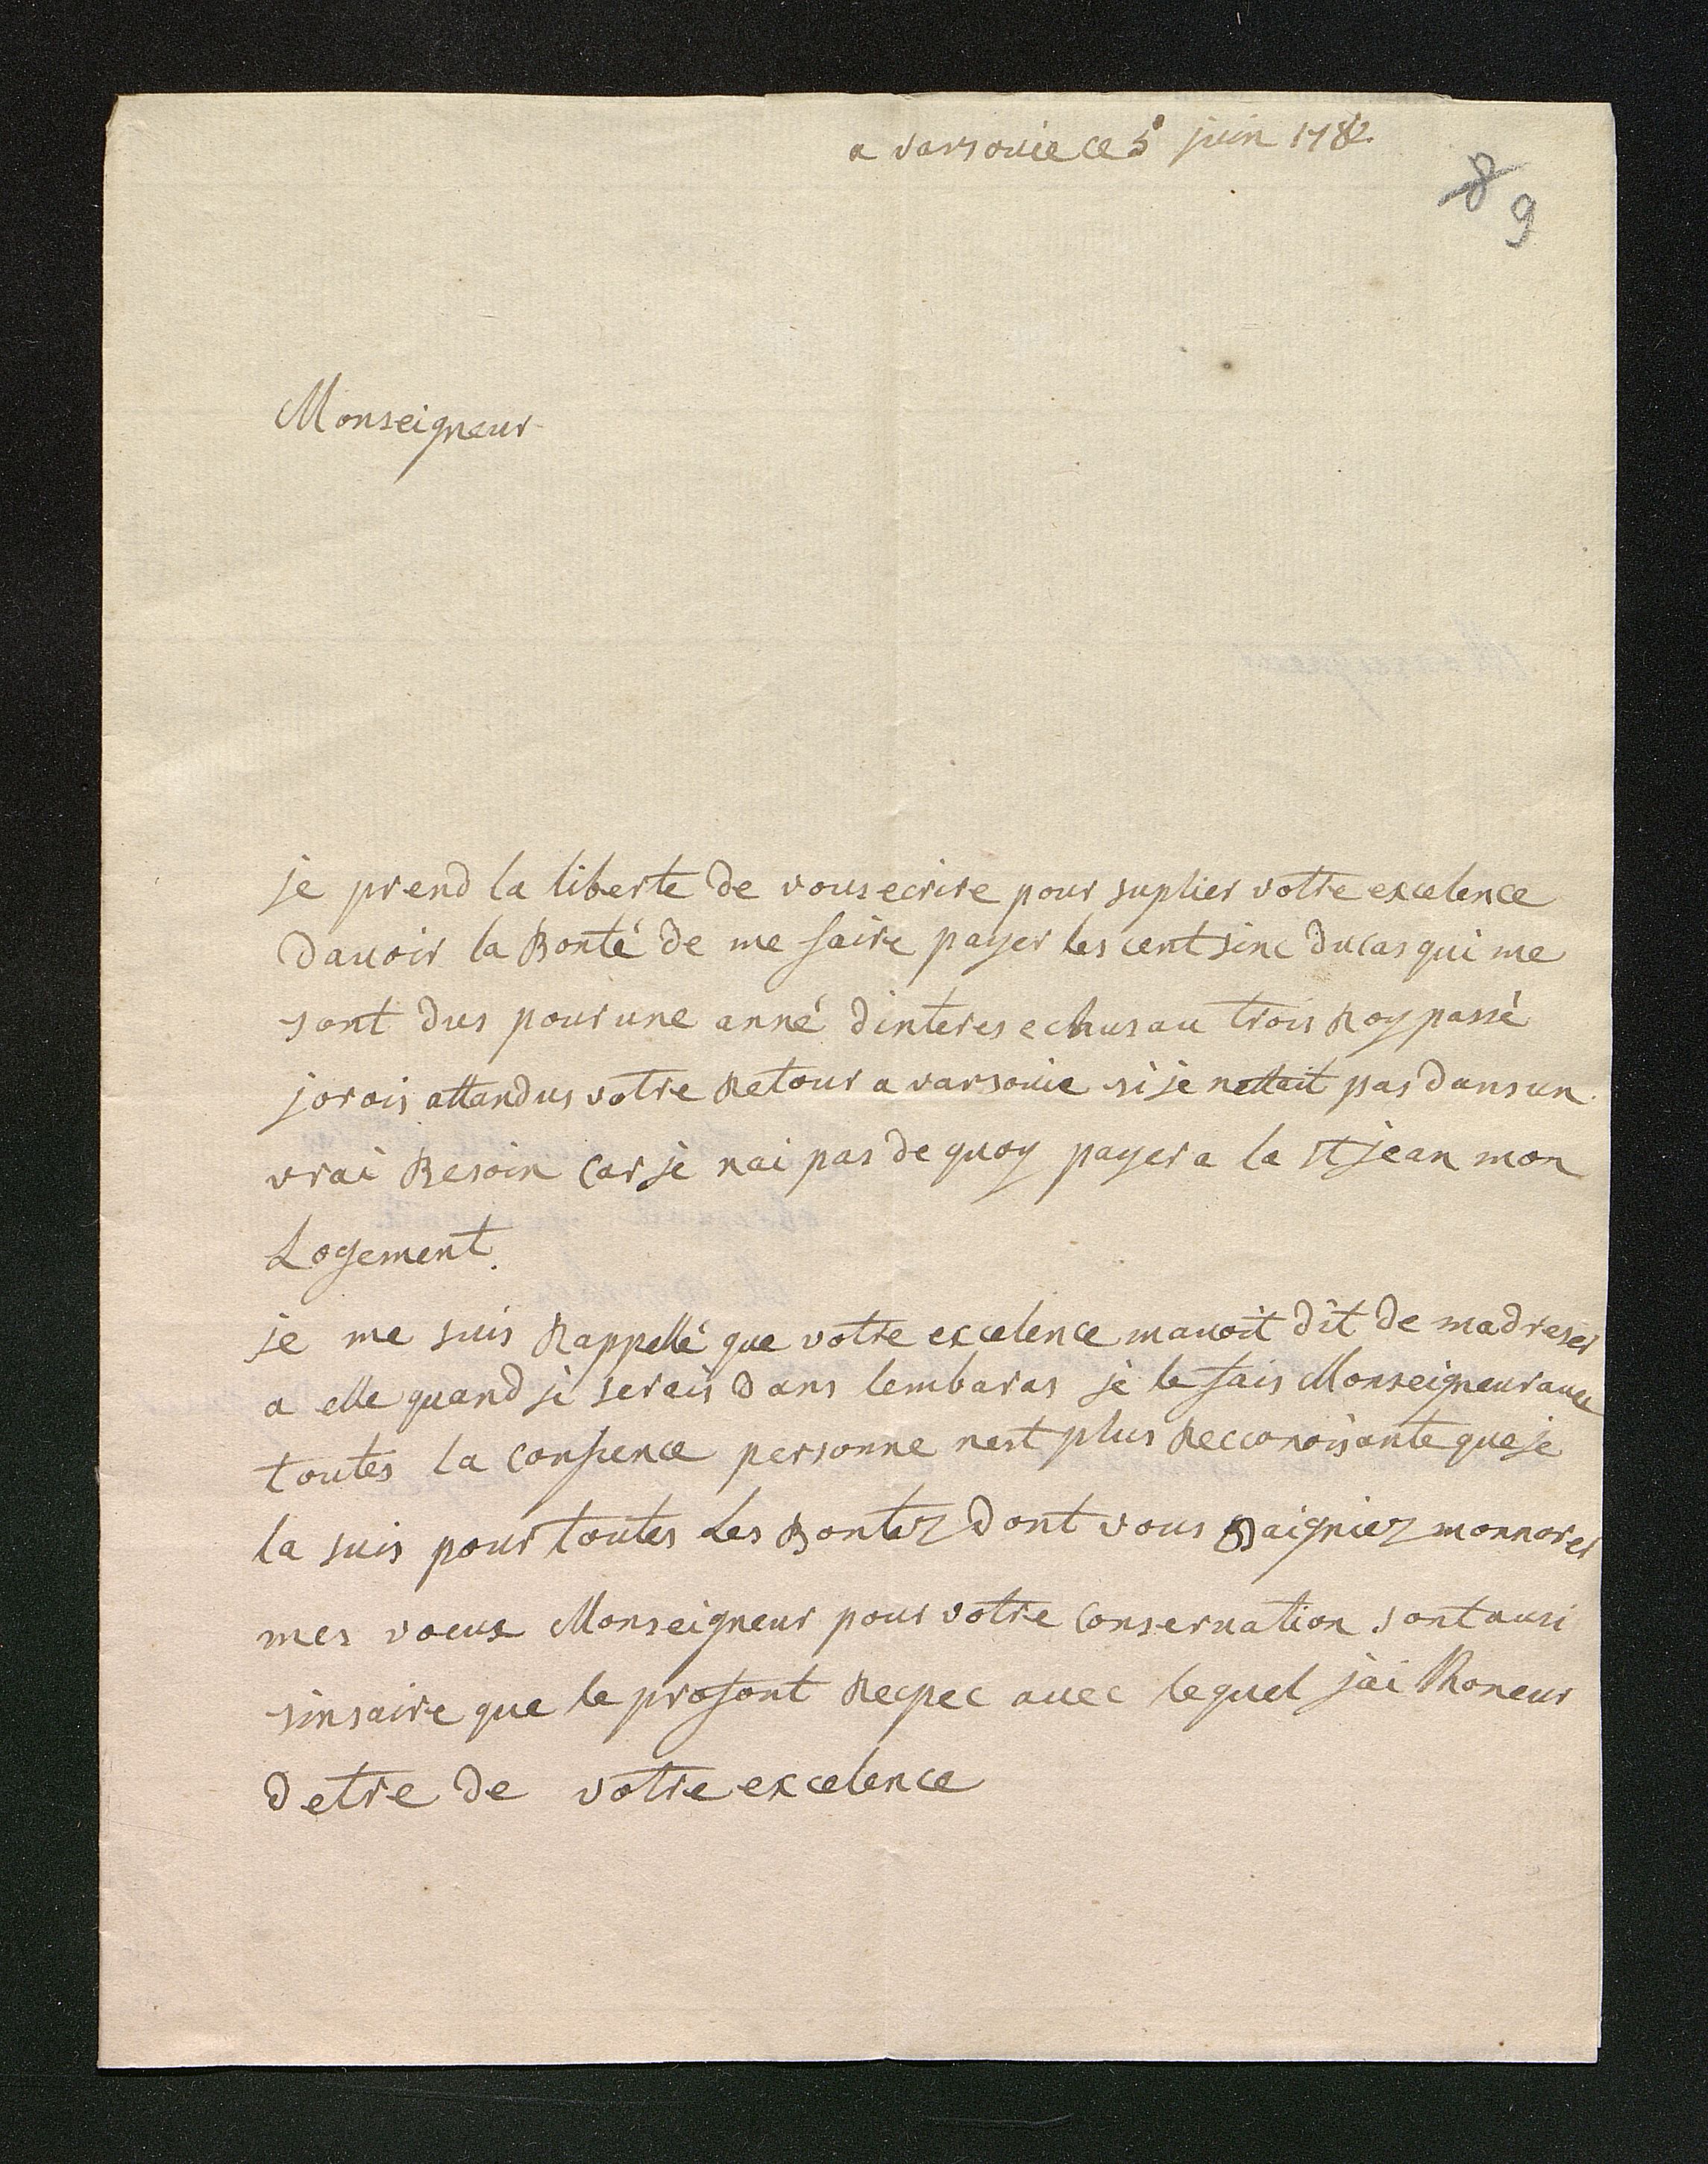 a varsovie ce 5 juin 1782
8 9
Monseigneur
je prend la liberte de vous ecrire pour suplier votre excelence
davoir la Bonté de me faire payer les cent sinc ducas qui me
sont dus pour une anné dinteres echus au trois Roy passé
jorois attandus votre Retour a varsovie si je nettait pas dans un
vrai Besoin car je nai pas de quoy payer a la st jean mon
Logement.
je me suis Rappellé que votre excelence mavoit dit de madreser
a elle quand je serais dans lembaras je le fais Monseigneur avec
toutes la confience personne nest plus Recconoisante que je
la suis pour toutes Les Bontez dont vous Daigniez monnorer
mes voeux Monseigneur pour votre conservation sont ausi
sinsaire que le profont Recpec avec lequel jai lhoneur
detre de votre excelence